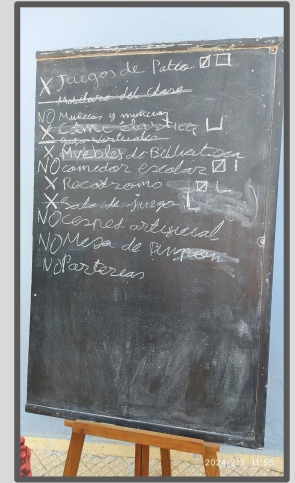 X Juegos de Patio ☑ ☐
Mobiliario del clase
NO Muñecas y muñecos
X Cama elastica
X Muebles de Biblioteca
NO comedor escolar ☑
X Rocodromo ☑
X Sala de juegos
NO cesped artificial
NO Mesa de pinpon
NO Porterias
2024/2/2 11:50